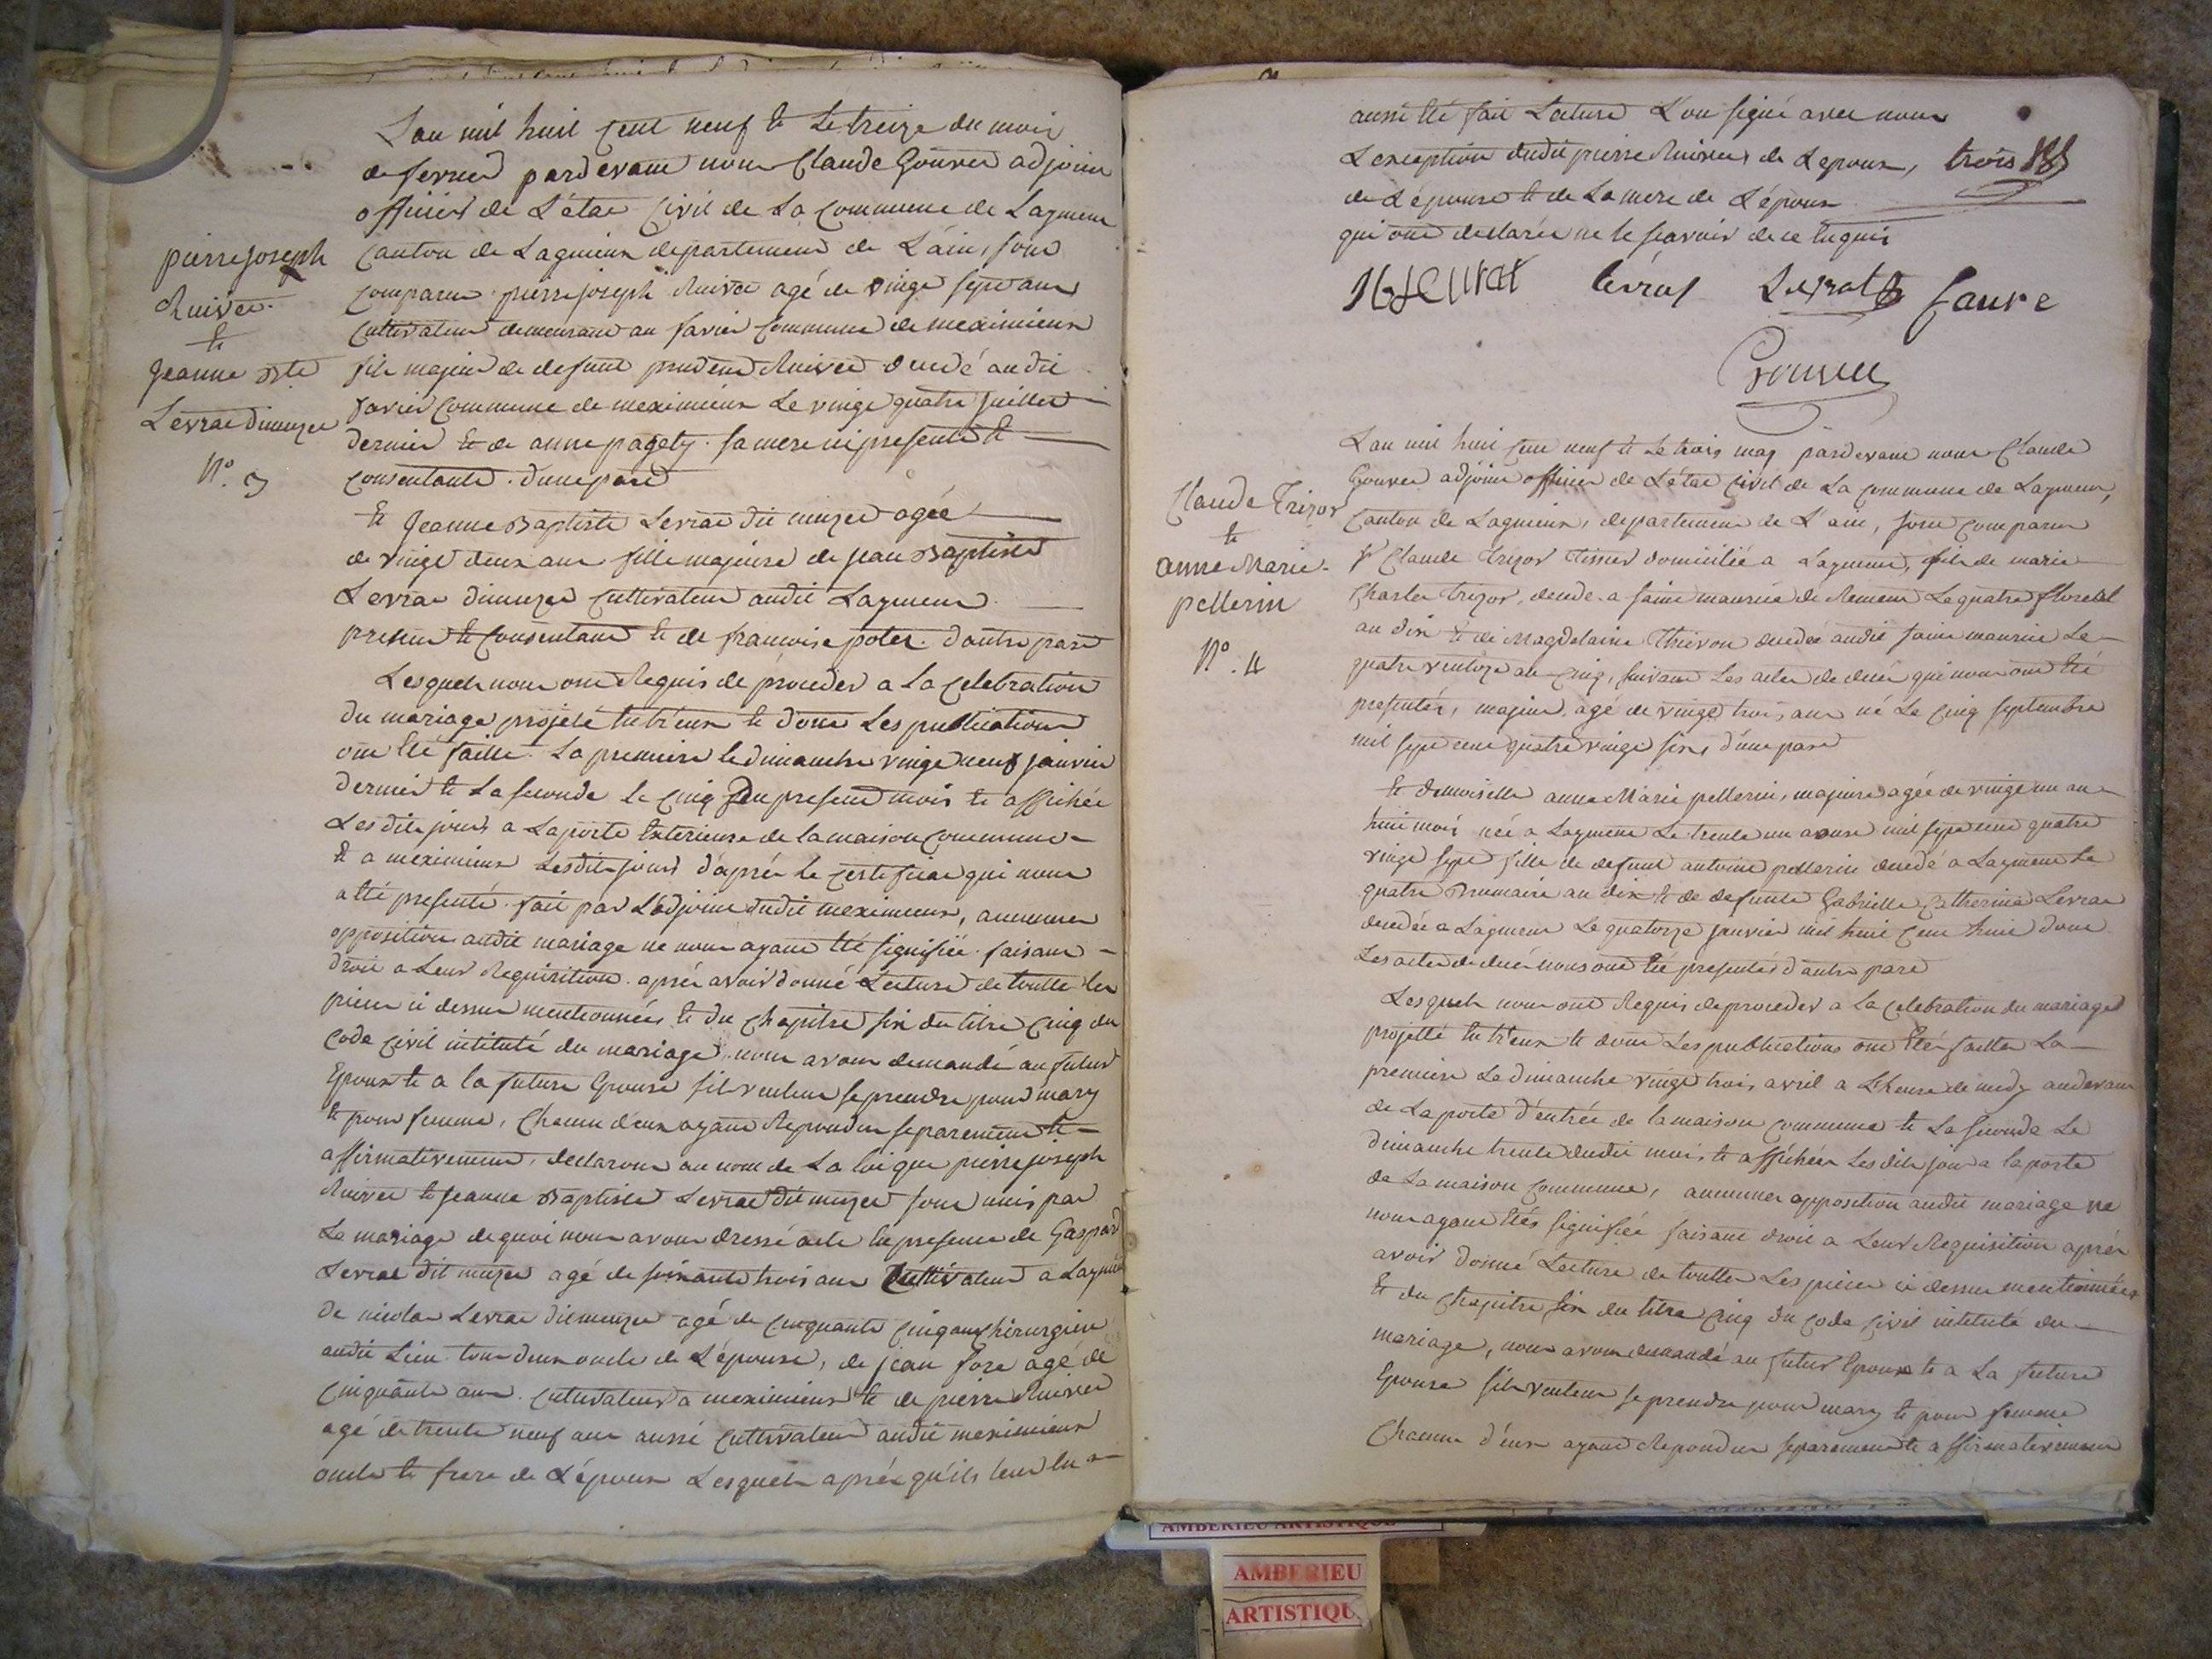 L'an mil huit cent neuf et le treize du mois
de fevrier pardevant nous Claude Gouvet adjoint
officier de L'état Civil de la Commune de
Canton de Lagnieux departement de L'ain, sont
comparus pierre joseph agé de vingt sept ans
Cultivateur demeurant au Commune de meximieux
fils majeur de defunt prudent decedé audit
Commune de meximieux Le vingt quatre juillet
dernier et de anne pagety sa mere ici presente et
Consentante d'une part
Et Jeanne Baptiste Levrat dit muzet agée
de vingt deux ans fille majeure de jean Baptiste
Levrat dit muzet Cultivateur audit
present et Consentant et de francoise d'autre part
Lesquels nous ont Requis de proceder a La Celebration
du mariage projeté entr'eux et dont Les publications
ont été faittes La premiere le dimanche vingt neuf janvier
dernier et La seconde le Cinq du present mois et affichée
Lesdits jours a La porte Exterieure de la maison Commune
et a meximieux Lesdits jours d'après le Certificat qui nous
a été presenté fait par L'adjoint dudit meximieux, aucunes
opposition audit mariage ne nous ayant été signifiée faisant
droit a Leur Requisition après avoir donné Lecture de touttes les
pieces ci dessus mentionnées et du Chapitre six du titre Cinq du
Code Civil intitulé du mariage, nous avons demandé au futur
Epoux et a la future Epouse s'ils veulent se prendre pour mary
et pour femme, Chacun d'eux ayant Repondu separement et
affirmativement, declarons au nom de La loi que pierre joseph
et Jeanne Baptiste Levrat dit muzet sont unis par
Le mariage de quoi nous avons dressé acte en presence de Gaspard
Levrat dit muzet agé de soixante trois ans Cultivateur a
de nicolas Levrat dit muzet agé de Cinquante Cinq ans Chirurgien
audit Lieu tous deux oncle de L'épouse, de jean agé de
Cinquante ans Cultivateur a meximieux et de pierre
agé de trente neuf ans aussi Cultivateur audit meximieux
oncle et frere de L'époux Lesquels après qu'ils leur en a
pierre joseph
et
Jeanne Bte
Levrat dit muzet
N°. 3
aussi été fait Lecture L'ont signé avec nous
L'exception dudit pierre de L'epoux, trois
de L'épouse et de La mere de L'époux
qui ont declarée ne le scavoir de ce Enquis
Levrat Faure
Gouvet
L'an mil huit cent neuf et Le trois may pardevant nous Claude
Gouvet adjoint officier de L'état Civil de La Commune de
Canton de Lagnieux, departement de L'ain, sont Comparus
Sr Claude Trizot Tissier domicilié a fils de marie
Charles Trizot, decedé a saint maurice de Remens Le quatre floreal
an dix et de Magdelaine decedée audit saint maurice Le
quatre ventoze an Cinq, suivant Les actes de decés qui nous ont été
presentés, majeur agé de vingt trois ans né Le Cinq septembre
mil sept cent quatre vingt six, d'une part
et demoiselle anne Marie pellerin, majeure agée de vingt un an
huit mois née a Le trente un aoust mil sept cent quatre
vingt sept fille de defunt antoine pellerin decedé a Le
quatre Brumaire an dix et de defunte Gabrielle Catherine Levrat
decedée a Le quatorze janvier mil huit cent huit dont
Les actes de decés nous ont été presentés d'autre part
Lesquels nous ont Requis de proceder a La Celebration du mariage
projetté entr'eux et dont Les publications ont été faittes La
premiere Le dimanche vingt trois avril a L'heure de midy audevant
de La porte d'entrée de la maison Commune et La seconde Le
dimanche trente dudit mois, et affichées Lesdits jours a la porte
de La maison Commune, aucunes opposition audit mariage ne
nous ayant étés signifiée faisant droit a Leur Requisition après
avoir donné Lecture de touttes Les pieces ci dessus mentionnées
et du Chapitre six du titre Cinq du Code Civil intitulé du
mariage, nous avons demandé au futur Epoux et a La future
Epouse s'ils veulent se prendre pour mary et pour femme
Chacun d'eux ayant Repondu separement et affirmativement
Claude Trizot
et
anne Marie
pellerin
N°. 4
AMBERIEU ARTISTIQUE
AMBERIEU
ARTISTIQU